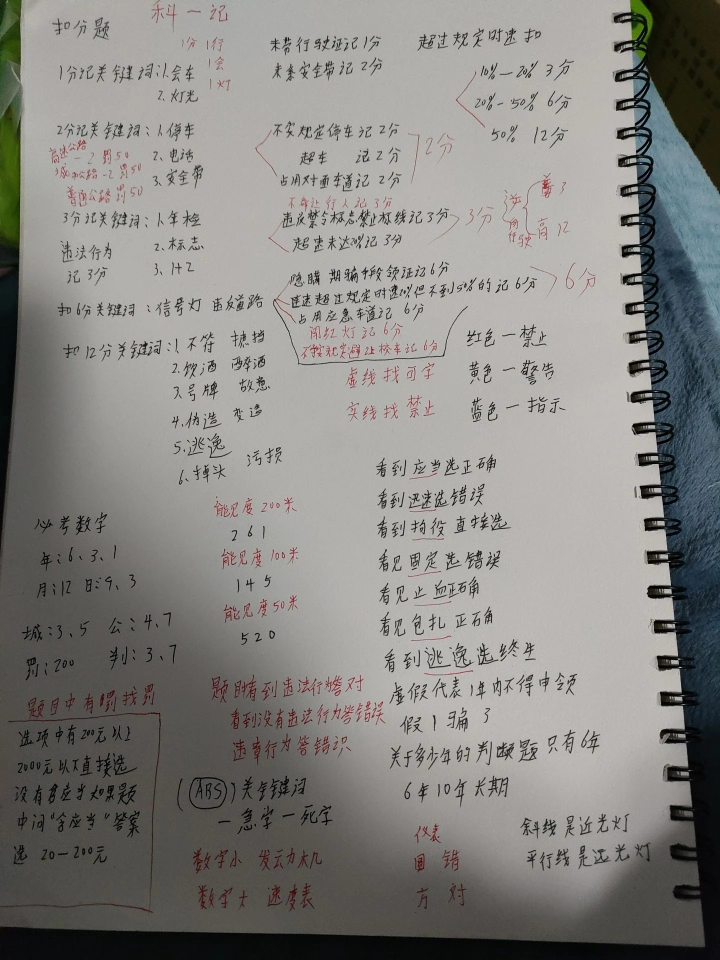 科一记
扣分题
1分 1行
1会
1灯
未带行驶证记1分
未系安全带记2分
超过规定时速扣
10%—20% 3分
20%—50% 6分
50% 12分
1分记关键词:1.会车
2.灯光
2分记关键词:1.停车
2.电话
3.安全带
高速公路
-2 罚50
城市公路-2罚50
普通公路罚50
不按规定停车记2分
超车 记2分
占用对面车道记2分
2分
3分记关键词:1.年检
2.标志
3.1+2
违法行为
记3分
不避让行人记3分
违反禁令标志禁止标线记3分
超速未达20%记3分
3分
普3
高12
扣6分关键词:信号灯 违反道路
隐瞒 期骗手段领证记6分
占用应急车道记6分
闯红灯记6分
不按规定避让校车记6分
6分
扣12分关键词:1.不符 遮挡
2.饮酒 醉酒
3.号牌 故意
4.伪造 变造
5.逃逸
6.掉头 污损
虚线找可字
实线找禁止
红色—禁止
黄色—警告
蓝色—指示
必考数字
年:6、3、1
月:12 日:9、3
城:3、5 公:4、7
罚:200 判:3、7
能见度200米
261
能见度100米
145
能见度50米
520
看到应当选正确
看到迅速选错误
看到拘役直接选
看见固定选错误
看见止血正确
看见包扎正确
看到逃逸选终生
虚假代表1年内不得申领
假1骗3
关于多少年的判断题只有6年
6年10年长期
题目中有罚找罚
选项中有200元以上
2000元以下直接选
没有答应当如果题
中问“含应当”答案
选 20—200元
题目看到违法行为答对
看到没有违法行为答错误
违章行为答错识
(ABS)关键词
一急字一死字
数字小 发动机
数字大 速度表
仪表
圆 错
方 对
斜线是近光灯
平行线是远光灯